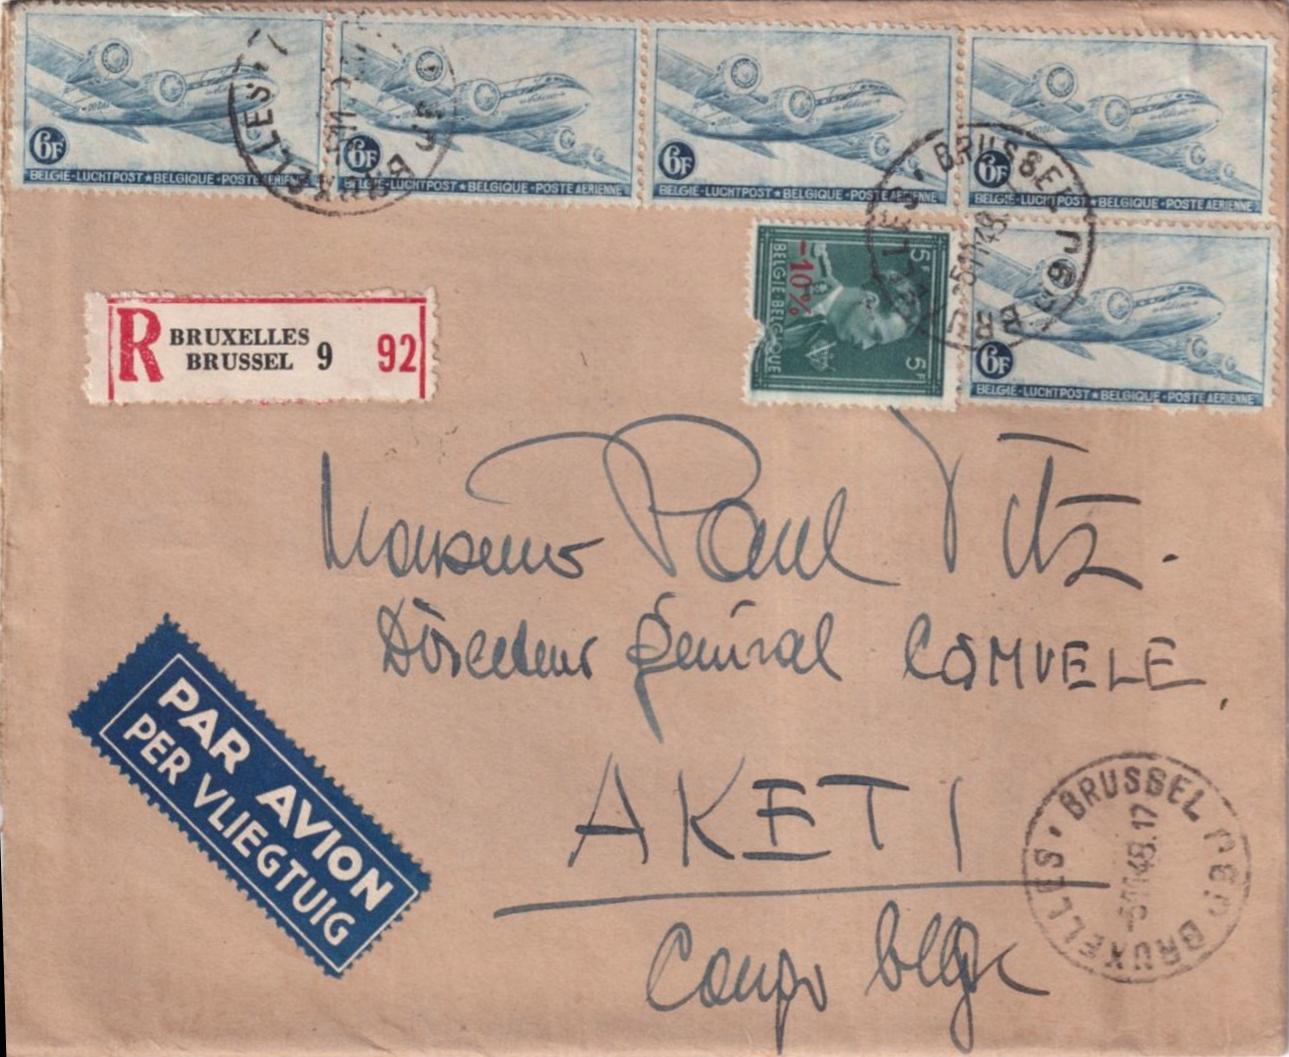 6F
BELGIE-LUCHTPOST★BELGIQUE-POSTE AERIENNE
6F
BELGIE-LUCHTPOST★BELGIQUE-POSTE AERIENNE
6F
BELGIE-LUCHTPOST★BELGIQUE-POSTE AERIENNE
6F
BELGIE-LUCHTPOST★BELGIQUE-POSTE AERIENNE
BRUSSEL
R BRUXELLES
BRUSSEL 9 92
BELGIE-BELGIQUE
-10%
5F
5F
6F
BELGIE-LUCHTPOST★BELGIQUE-POSTE AERIENNE
Monsieur Paul Vitz.
Directeur général COMVELE,
AKETI
Congo belge
PAR AVION
PER VLIEGTUIG
BRUSSEL 9 BRUXELLES
-5 11 48. 17